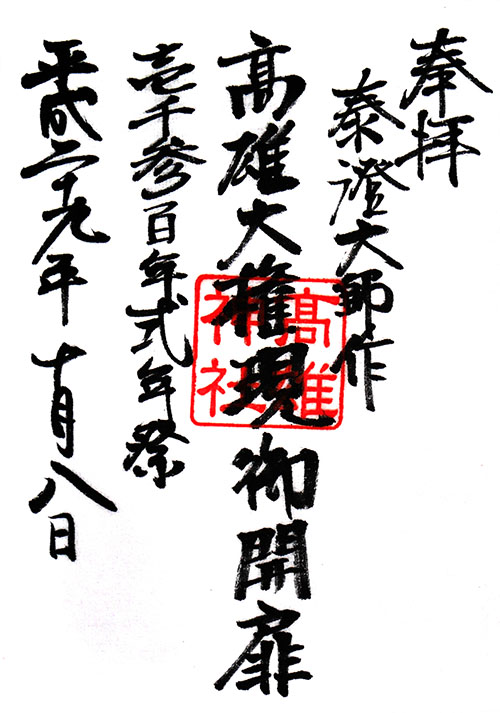 奉拝
泰澄大師作
髙雄大権現御開扉
壱千参百年式年祭
平成二十九年十月八日
髙雄
神社